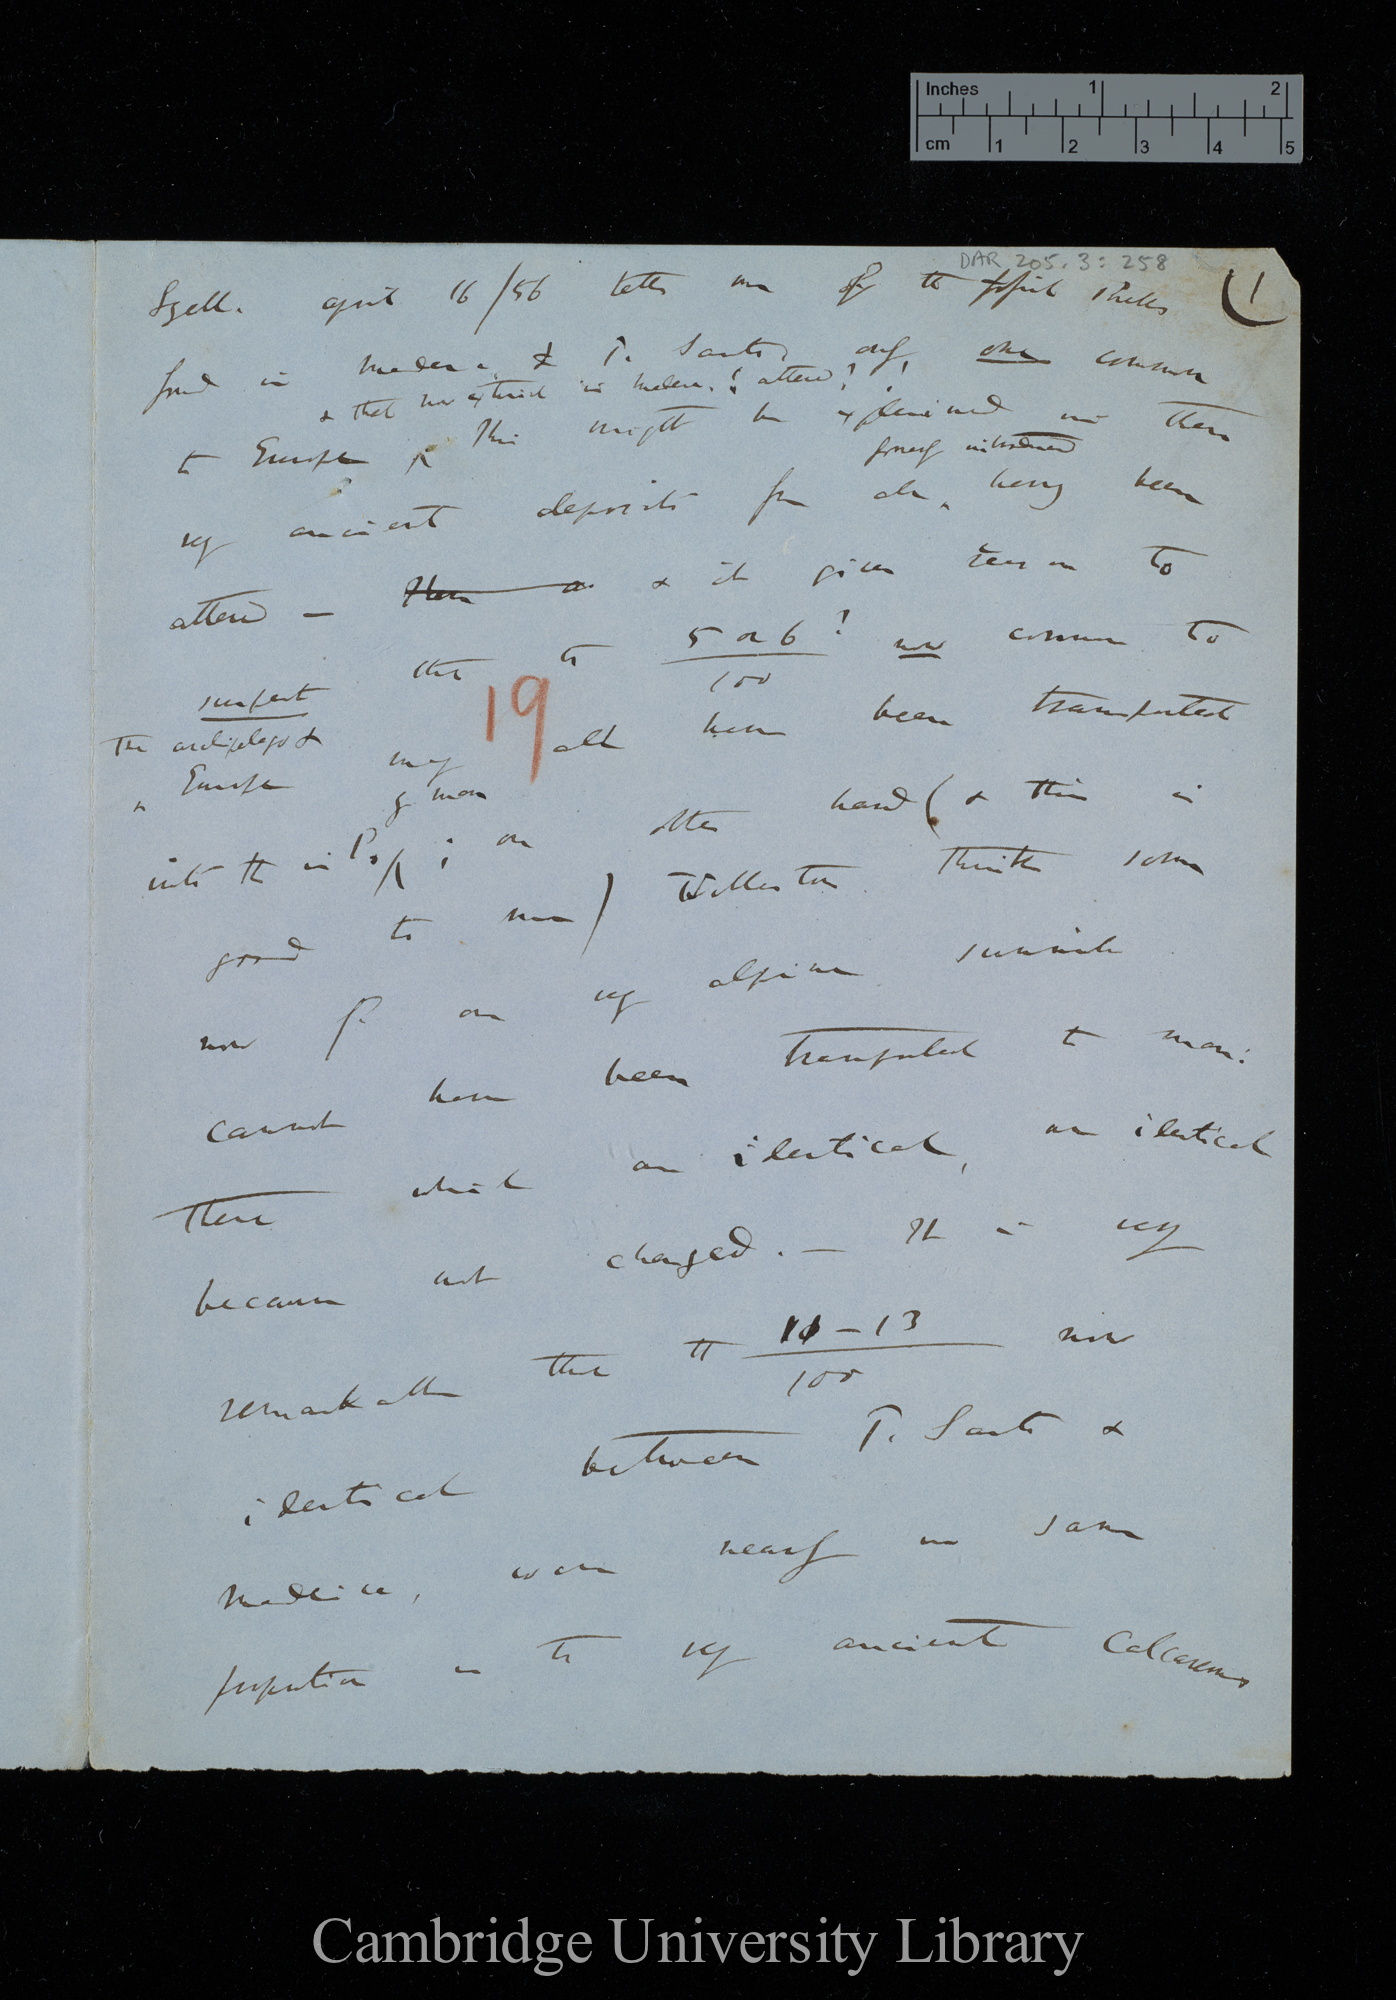 Inches 1 2
cm 1 2 3 4 5
DAR 205.3: 258
(1
Lyell. april 16/56 tells me of the fossil shells
found in Madeira & P. Santo, only one common
& that now extinct in Madeira! altered?!
to Europe / This might be explained in these
formerly introduced
very ancient deposits from all being been
altered — & it gives reason to
suspect that the 5 or 6?/100 now common to
19
The archipelago &
Europe may all have been transported
by man
into the in P. / ; on other hand (& this is
good to me) Wollaston thinks some
now f. on very alpine summits
cannot have been transported to man:
There which are identical, are identical
because not changed. — It is very
remarkable that the 11–13/100 now
identical between P. Santo &
Madeira, were nearly in same
proportion in the very ancient Calcareous
Cambridge University Library